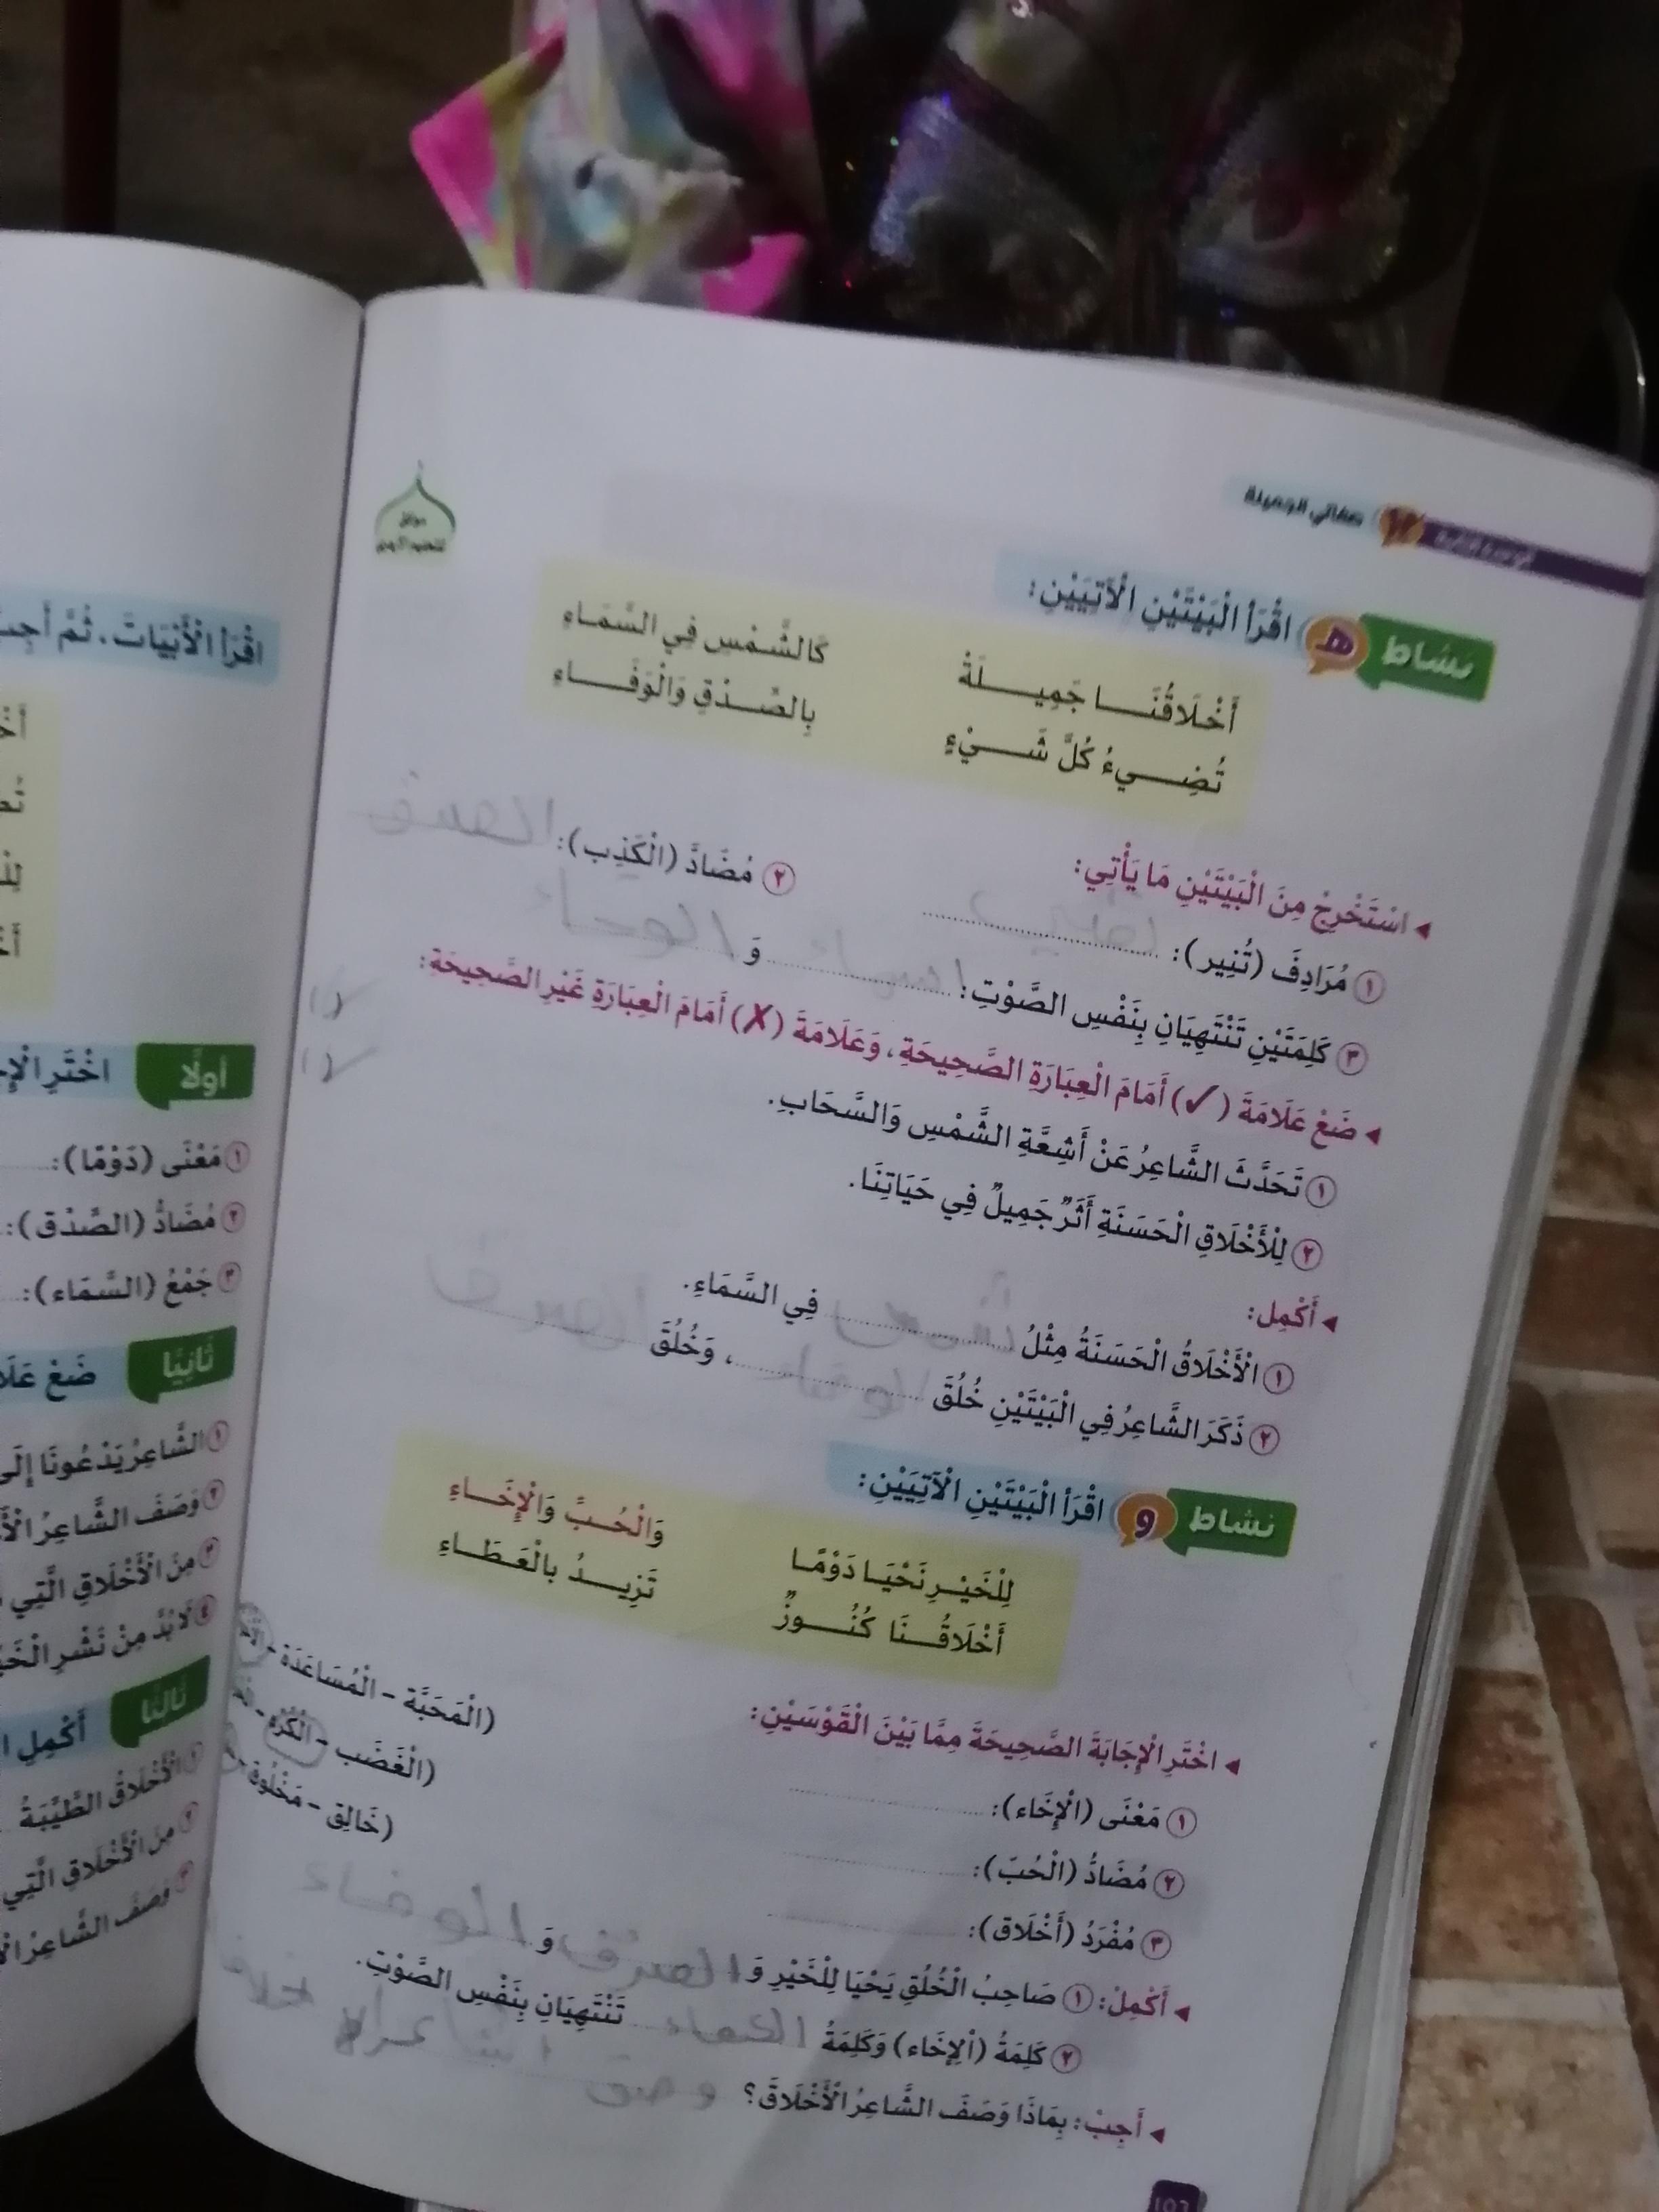 صفاتي الجميلة
نشاط هـ اقْرَأِ الْبَيْتَيْنِ الْآتِيَيْنِ:
أَخْلَاقُنَا جَمِيلَةْ كَالشَّمْسِ فِي السَّمَاءِ
تُضِيءُ كُلَّ شَيْءٍ بِالصِّدْقِ وَالْوَفَاءِ
اسْتَخْرِجْ مِنَ الْبَيْتَيْنِ مَا يَأْتِي:
١ مُرَادِفَ (تُنِير): ٢ مُضَادَّ (الْكَذِب): الصدق
٣ كَلِمَتَيْنِ تَنْتَهِيَانِ بِنَفْسِ الصَّوْتِ: وَ
ضَعْ عَلَامَةَ (✓) أَمَامَ الْعِبَارَةِ الصَّحِيحَةِ، وَعَلَامَةَ (✗) أَمَامَ الْعِبَارَةِ غَيْرِ الصَّحِيحَةِ:
١ تَحَدَّثَ الشَّاعِرُ عَنْ أَشِعَّةِ الشَّمْسِ وَالسَّحَابِ.
٢ لِلْأَخْلَاقِ الْحَسَنَةِ أَثَرٌ جَمِيلٌ فِي حَيَاتِنَا.
أَكْمِل:
١ الْأَخْلَاقُ الْحَسَنَةُ مِثْلُ فِي السَّمَاءِ.
٢ ذَكَرَ الشَّاعِرُ فِي الْبَيْتَيْنِ خُلُقَ ، وَخُلُقَ
نشاط و اقْرَأِ الْبَيْتَيْنِ الْآتِيَيْنِ:
لِلْخَيْرِ نَحْيَا دَوْمًا وَالْحُبِّ وَالْإِخَاءِ
أَخْلَاقُنَا كُنُوزٌ تَزِيدُ بِالْعَطَاءِ
اخْتَرِ الْإِجَابَةَ الصَّحِيحَةَ مِمَّا بَيْنَ الْقَوْسَيْنِ:
١ مَعْنَى (الْإِخَاء): (الْمَحَبَّة - الْمُسَاعَدَة -
٢ مُضَادُّ (الْحُبّ): (الْغَضَب - الْكُرْه -
٣ مُفْرَدُ (أَخْلَاق): (خَالِق - مَخْلُوق -
أَكْمِلْ: ١ صَاحِبُ الْخُلُقِ يَحْيَا لِلْخَيْرِ وَ وَ
٢ كَلِمَةُ (الْإِخَاء) وَكَلِمَةُ تَنْتَهِيَانِ بِنَفْسِ الصَّوْتِ.
أَجِبْ: بِمَاذَا وَصَفَ الشَّاعِرُ الْأَخْلَاقَ؟
اقْرَأِ الْأَبْيَاتَ، ثُمَّ
أولًا اخْتَرِ
١ مَعْنَى (دَوْمًا):
٢ مُضَادُّ (الصِّدْق):
٣ جَمْعُ (السَّمَاء):
ثانيًا ضَعْ
١ الشَّاعِرُ يَدْعُونَا إِلَى
٢ وَصَفَ الشَّاعِرُ
٣ مِنَ الْأَخْلَاقِ الَّتِي
٤ لَا بُدَّ مِنْ نَشْرِ
ثالثًا أَكْمِلِ
١ الْأَخْلَاقُ الطَّيِّبَةُ
٢ مِنَ الْأَخْلَاقِ الَّتِي
٣ وَصَفَ الشَّاعِرُ